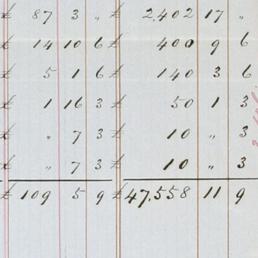 £ 87 3 „ £ 2402 17 „
£ 14 10 6 £ 400 9 6
£ 5 1 6 £ 140 3 6
£ 1 16 3 £ 50 1 3
£ „ 7 3 £ 10 „ 3
£ „ 7 3 £ 10 „ 3
£ 109 5 9 £ 47.558 11 9